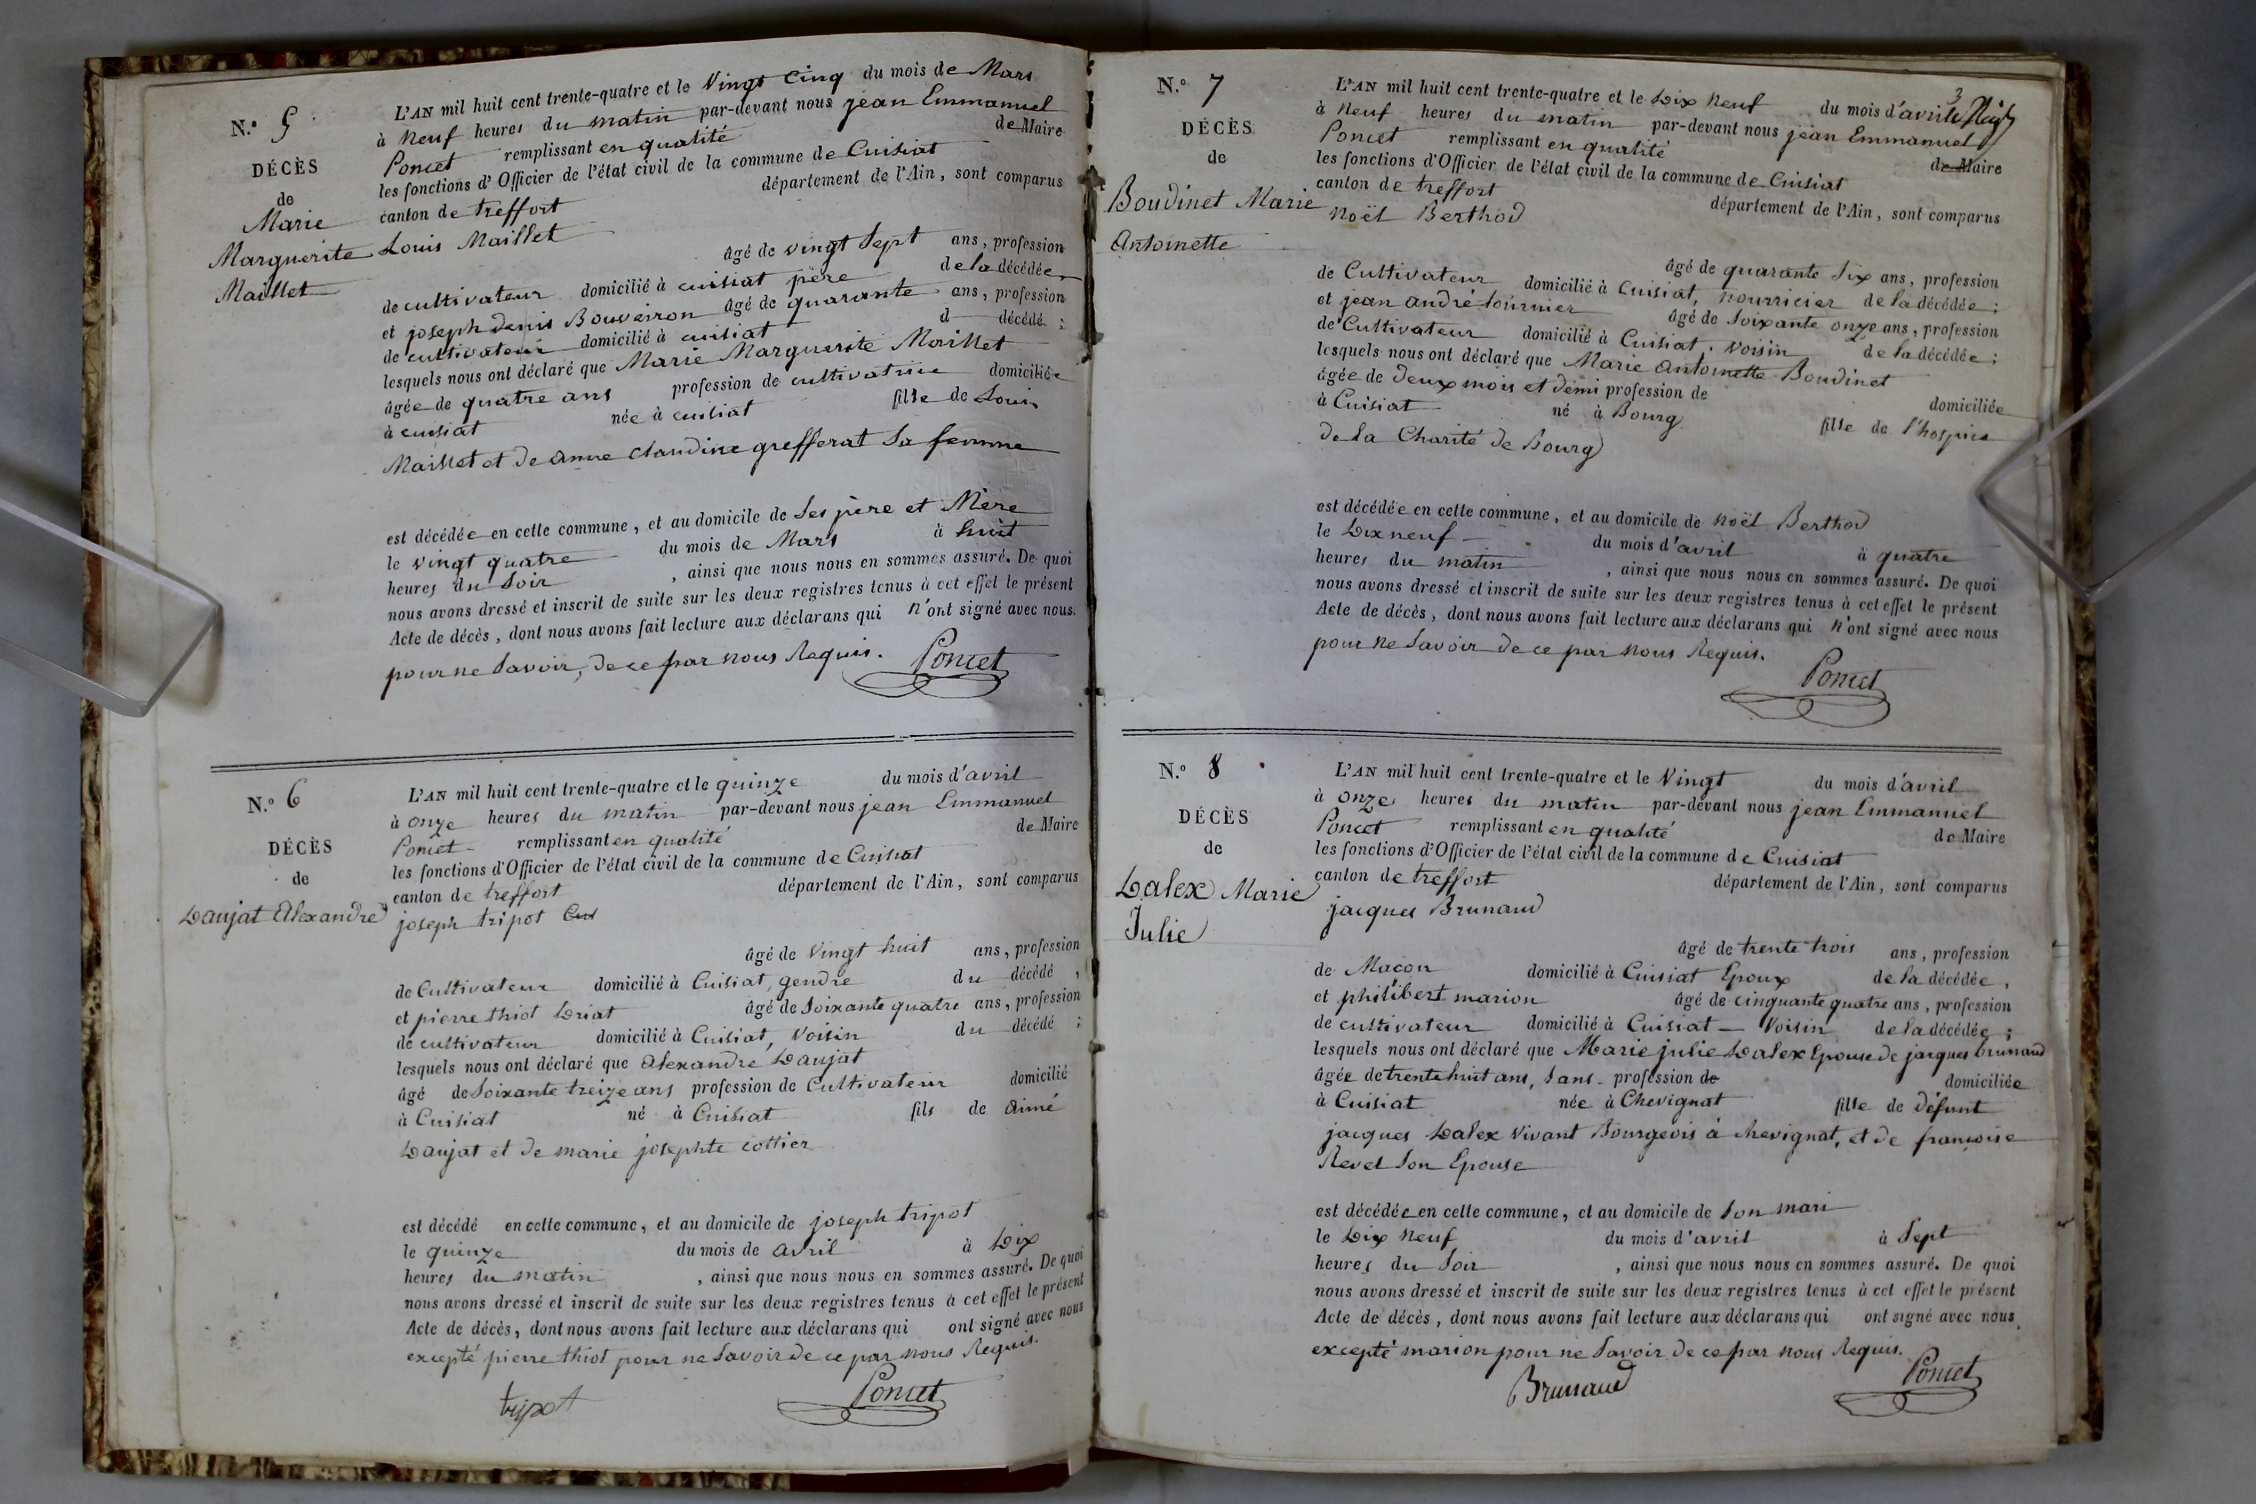 N.º 5
DÉCÈS
de
Marie
Marguerite
Maillet
L'AN mil huit cent trente-quatre et le vingt cinq du mois de Mars
à neuf heures du matin par-devant nous jean Emmanuel
Poncet remplissant en qualité de Maire
les fonctions d'Officier de l'état civil de la commune de Cuisiat
canton de treffort département de l'Ain, sont comparus
Louis Maillet
âgé de vingt Sept ans, profession
de cultivateur domicilié à cuisiat père de la décédée
et joseph denis Bouveiron âgé de quarante ans, profession
de cultivateur domicilié à cuisiat d décédé ;
lesquels nous ont déclaré que Marie Marguerite Maillet
âgée de quatre ans profession de cultivatrice domiciliée
à cuisiat née à cuisiat fille de Louis
Maillet et de anne claudine grefferat Sa femme
est décédée en cette commune, et au domicile de Ses père et Mère
le vingt quatre du mois de Mars à huit
heures du Soir, ainsi que nous nous en sommes assuré. De quoi
nous avons dressé et inscrit de suite sur les deux registres tenus à cet effet le présent
Acte de décès, dont nous avons fait lecture aux déclarans qui n'ont signé avec nous.
pour ne Savoir, de ce par nous Requis. Poncet
N.º 6
DÉCÈS
de
Daujat Alexandre
L'AN mil huit cent trente-quatre et le quinze du mois d'avril
à onze heures du matin par-devant nous jean Emmanuel
Poncet remplissant en qualité de Maire
les fonctions d'Officier de l'état civil de la commune de Cuisiat
canton de treffort département de l'Ain, sont comparus
joseph tripot
âgé de vingt huit ans, profession
de Cultivateur domicilié à Cuisiat, gendre du décédé,
et pierre thiot Driat âgé de Soixante quatre ans, profession
de cultivateur domicilié à Cuisiat, Voisin du décédé ;
lesquels nous ont déclaré que alexandre Daujat
âgé de Soixante treize ans profession de Cultivateur domicilié
à Cuisiat né à Cuisiat fils de aimé
Daujat et de marie josephte cottier
est décédé en cette commune, et au domicile de joseph tripot
le quinze du mois de avril à Dix
heures du matin, ainsi que nous nous en sommes assuré. De quoi
nous avons dressé et inscrit de suite sur les deux registres tenus à cet effet le présent
Acte de décès, dont nous avons fait lecture aux déclarans qui ont signé avec nous
excepté pierre thiot pour ne Savoir de ce par nous Requis.
tripot Poncet
3
N.º 7
DÉCÈS
de
Boudinet Marie
Antoinette
L'AN mil huit cent trente-quatre et le Dix Neuf du mois d'avril
à Neuf heures du matin par-devant nous jean Emmanuel
Poncet remplissant en qualité de Maire
les fonctions d'Officier de l'état civil de la commune de Cuisiat
canton de treffort département de l'Ain, sont comparus
Noël Berthod
âgé de quarante Six ans, profession
de Cultivateur domicilié à Cuisiat, nourricier de la décédée ;
et jean andré fournier âgé de Soixante onze ans, profession
de Cultivateur domicilié à Cuisiat, voisin de la décédée ;
lesquels nous ont déclaré que Marie Antoinette Boudinet
âgée de deux mois et demi profession de domiciliée
à Cuisiat né à Bourg fille de l'hospice
de la Charité de Bourg
est décédée en cette commune, et au domicile de Noël Berthod
le Dix neuf du mois d'avril à quatre
heures du matin, ainsi que nous nous en sommes assuré. De quoi
nous avons dressé et inscrit de suite sur les deux registres tenus à cet effet le présent
Acte de décès, dont nous avons fait lecture aux déclarans qui n'ont signé avec nous
pour ne Savoir de ce par nous Requis.
Poncet
N.º 8
DÉCÈS
de
Dalex Marie
Julie
L'AN mil huit cent trente-quatre et le Vingt du mois d'avril
à onze heures du matin par-devant nous jean Emmanuel
Poncet remplissant en qualité de Maire
les fonctions d'Officier de l'état civil de la commune de Cuisiat
canton de treffort département de l'Ain, sont comparus
jacques Brunaud
âgé de trente trois ans, profession
de Maçon domicilié à Cuisiat Epoux de la décédée,
et philibert marion âgé de cinquante quatre ans, profession
de cultivateur domicilié à Cuisiat Voisin de la décédée ;
lesquels nous ont déclaré que Marie julie Dalex Epouse de jacques brunaud
âgée de trente huit ans, Sans profession de domiciliée
à Cuisiat née à Chevignat fille de défunt
jacques Dalex vivant Bourgeois à chevignat, et de françoise
Revel Son Epouse
est décédée en cette commune, et au domicile de Son mari
le Dix Neuf du mois d'avril à Sept
heures du Soir, ainsi que nous nous en sommes assuré. De quoi
nous avons dressé et inscrit de suite sur les deux registres tenus à cet effet le présent
Acte de décès, dont nous avons fait lecture aux déclarans qui ont signé avec nous,
excepté marion pour ne Savoir de ce par nous Requis.
Brunaud Poncet